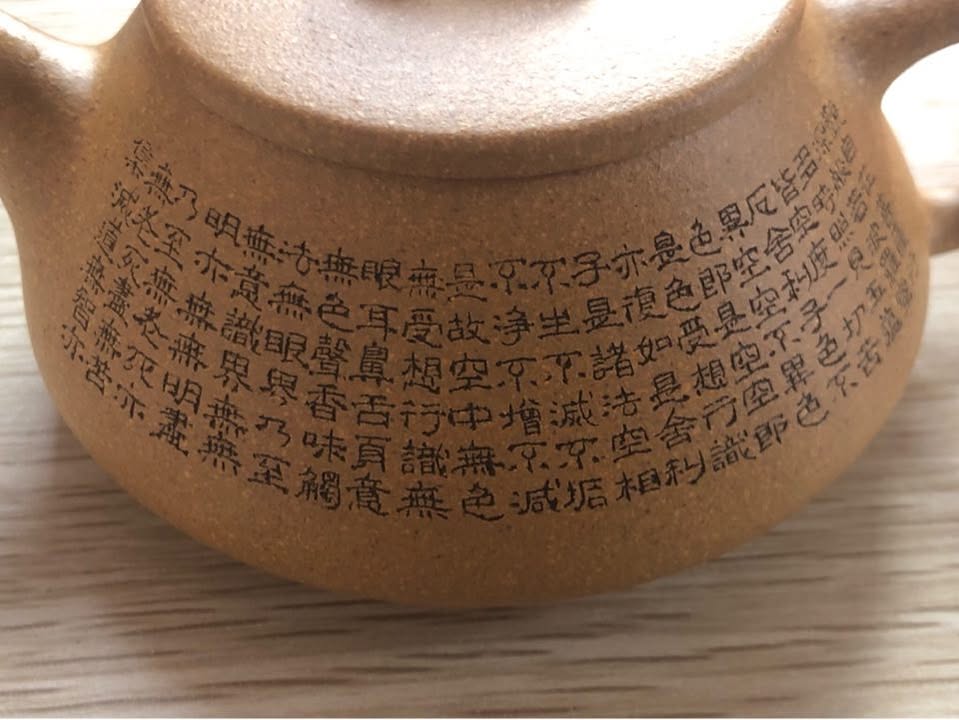 多時照見五蘊
皆空度一切苦
厄舍利子色不
異空空不異色
色即是空空即
是色受想行識
亦復如是舍利
子是諸法空相
不生不滅不垢
不淨不增不減
是故空中無色
無受想行識無
眼耳鼻舌身意
無色聲香味觸
法無眼界乃至
無意識界無無
明亦無無明盡
乃至無老死亦
無老死盡無苦
集滅道無智亦